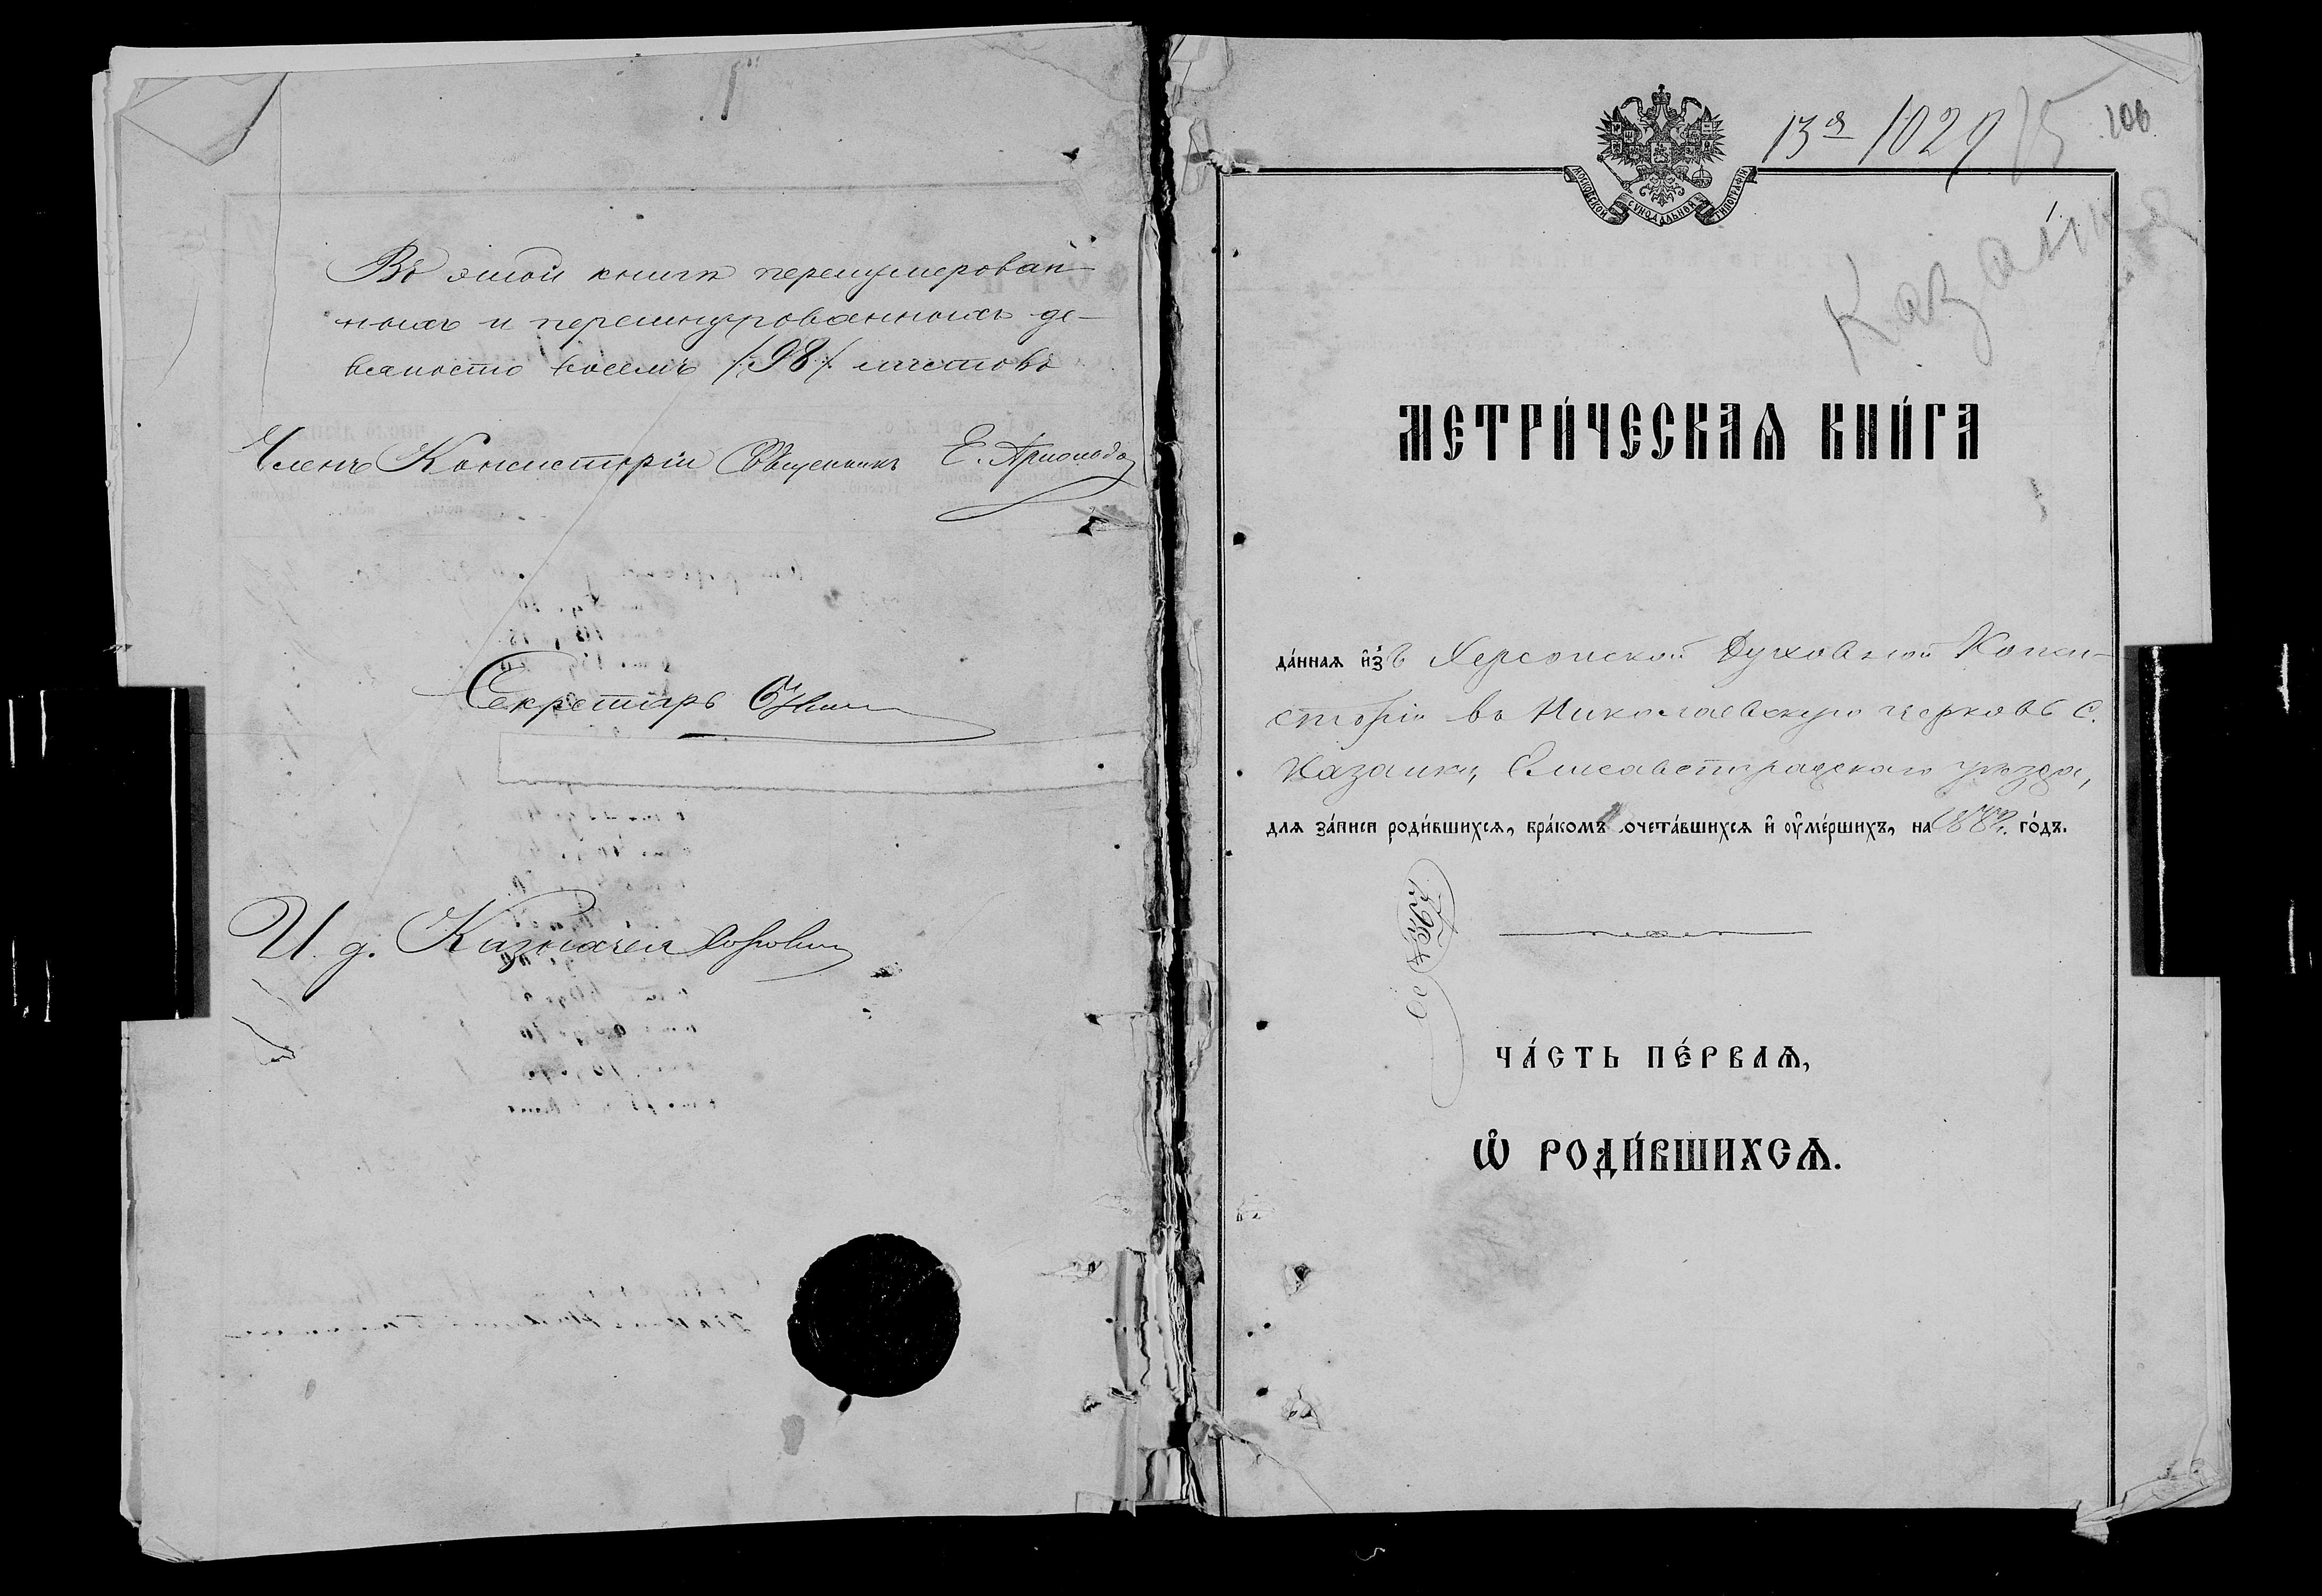 Въ этой книгѣ перенумерован-
ныхъ и перешнурованныхъ де-
вяносто восемь /98/ листовъ
Членъ Консисторіи Священникъ Е. Арнольдъ
Секретарь
И. д. Казначея
13я 1029 15 106
МОСКОВСКОЙ СУНОДАЛЬНОЙ ТИПОГРАФІИ
Казанка
МЕТРИ́ЧЕСКАѦ КНИ́ГА
да́нная и҆з̾ Херсонской Духовной Конси-
сторіи въ Николаевскую церковь с.
Казанки, Елисаветградскаго уѣзда,
для за́писи роди́вшихся, бра́комъ сочета́вшихся и҆ ᲂу҆ме́ршихъ, на го́дъ.
ЧА́СТЬ ПЕ́РВАѦ,
Ѡ҆ РОДИ́ВШИХСѦ.